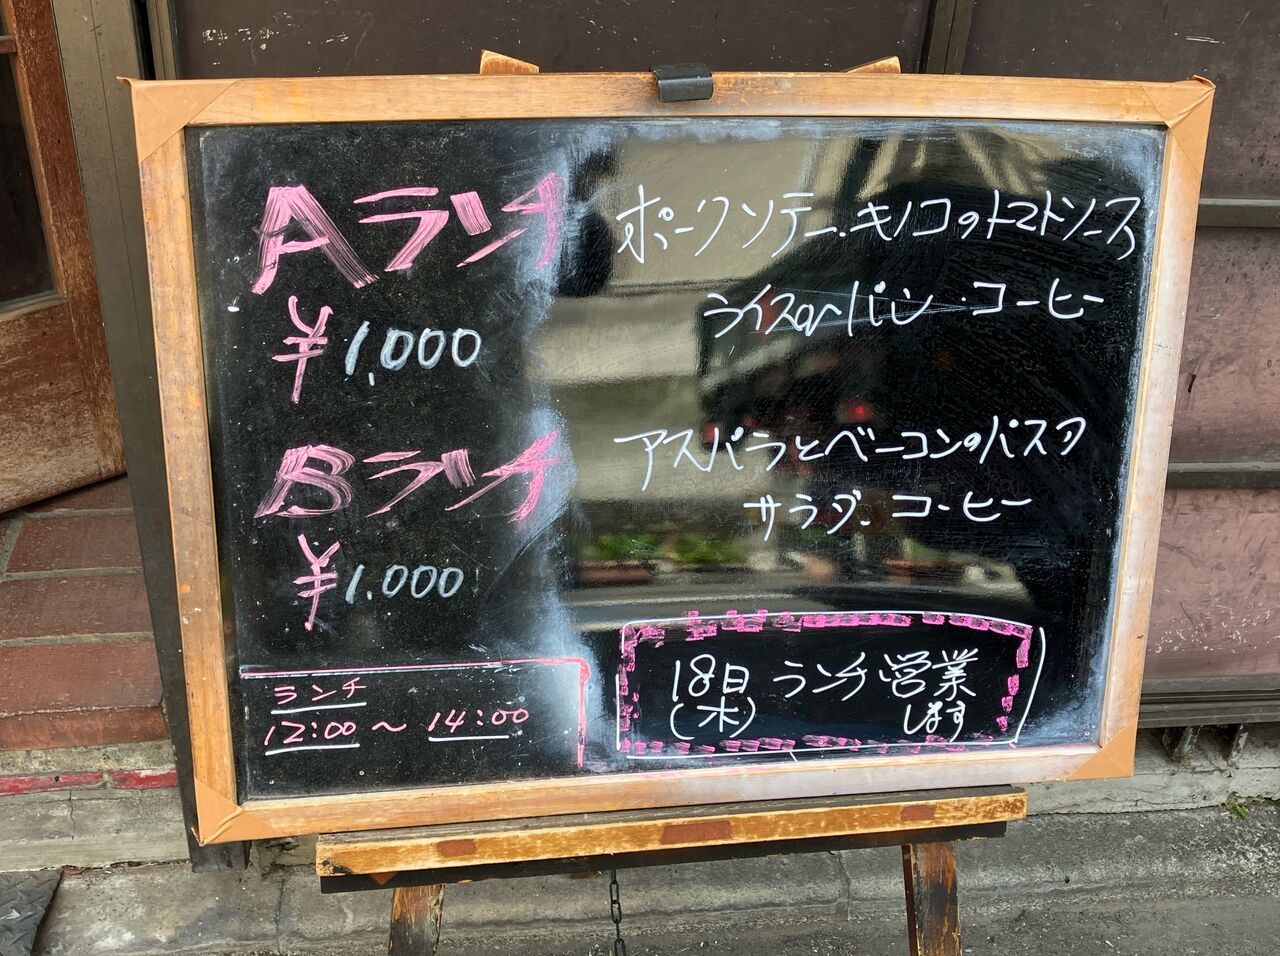 Aランチ
ポークソテー・キノコのトマトソース
ライスorパン・コーヒー
¥1,000
Bランチ
アスパラとベーコンのパスタ
サラダ、コーヒー
¥1.000
ランチ
12:00～14:00
18日 ランチ営業
(木) します